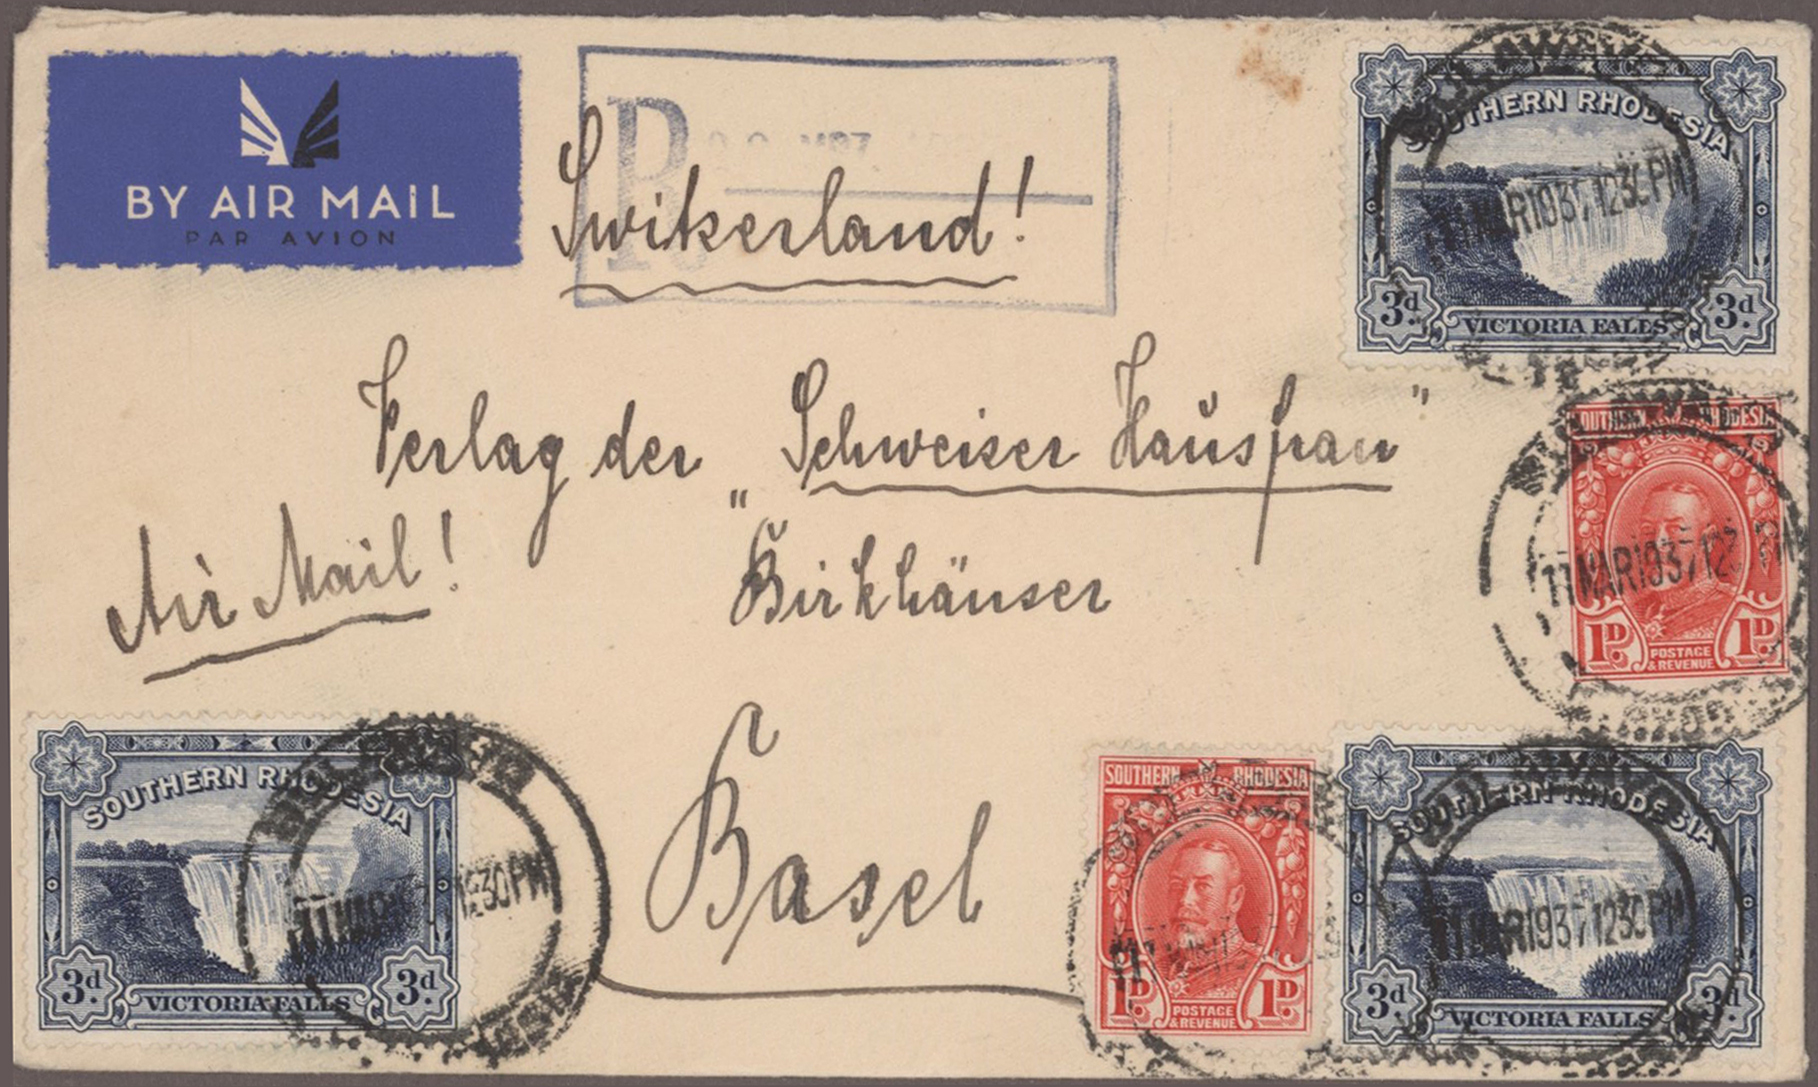 BY AIR MAIL
PAR AVION
R
Switzerland!
Verlag der "Schweizer Hausfrau"
Birkhäuser
Air Mail!
Basel
SOUTHERN RHODESIA
11 MAR 1937 1230 PM
3d 3d
VICTORIA FALLS
SOUTHERN RHODESIA
11 MAR 1937 PM
1D 1D
POSTAGE
& REVENUE
SOUTHERN RHODESIA
1230 PM
3d 3d
VICTORIA FALLS
SOUTHERN RHODESIA
1D 1D
POSTAGE
& REVENUE
SOUTHERN RHODESIA
11 MAR 1937 1230 PM
3d 3d
VICTORIA FALLS